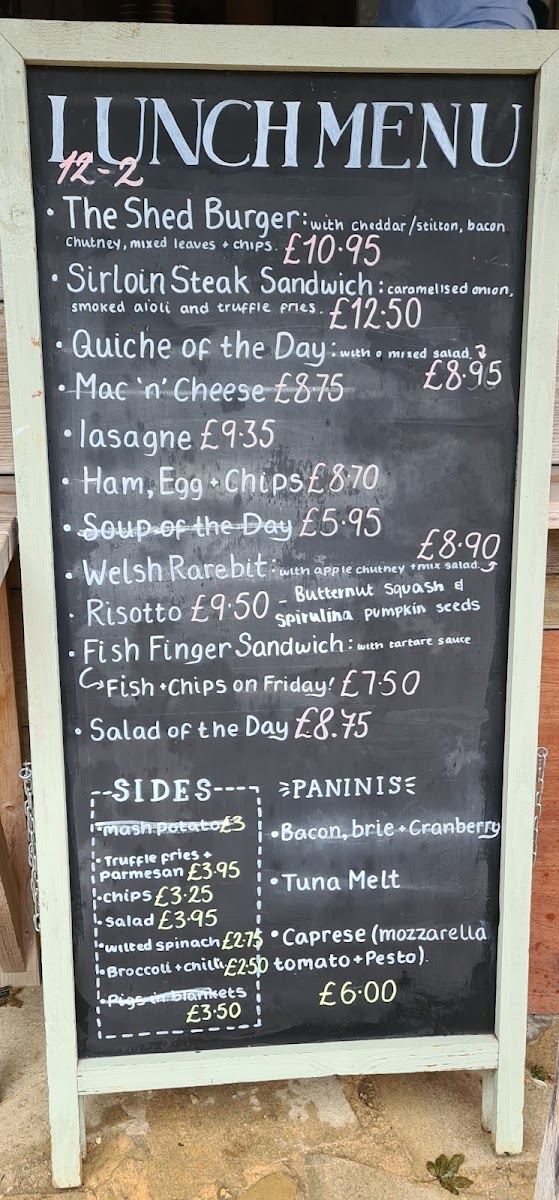 LUNCH MENU
12-2
• The Shed Burger: with cheddar/stilton, bacon
chutney, mixed leaves + chips. £10.95
• Sirloin Steak Sandwich: caramelised onion,
smoked aioli and truffle fries. £12.50
• Quiche of the Day: with a mixed salad.
£8.95
• Mac 'n' Cheese £8.75
• lasagne £9.35
• Ham, Egg + Chips £8.70
• Soup of the Day £5.95
£8.90
• Welsh Rarebit: with apple chutney + mix salad.
• Risotto £9.50 - Butternut Squash &
Spirulina pumpkin seeds
• Fish Finger Sandwich: with tartare sauce
Fish + Chips on Friday! £7.50
• Salad of the Day £8.75
SIDES
• mash potato £3
• Truffle fries +
parmesan £3.95
• chips £3.25
• salad £3.95
• wilted spinach £2.75
• Broccoli + chilli £2.50
• Pigs in blankets
£3.50
PANINIS
• Bacon, brie + Cranberry
• Tuna Melt
• Caprese (mozzarella
tomato + Pesto).
£6.00